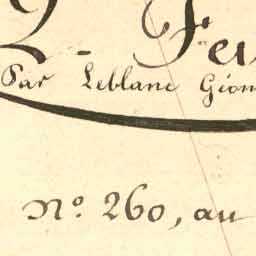 2 - Feu
Par Leblanc Géom
N.º 260, au